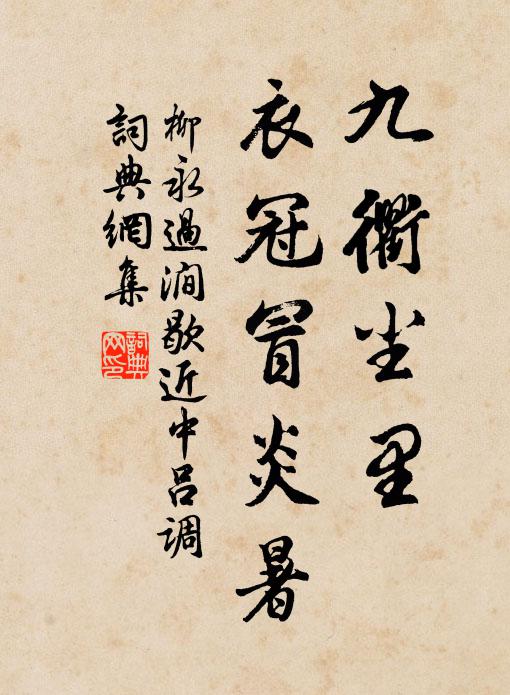 九衢尘里
衣冠冒炎暑
柳永過澗歇近中吕调
詞典網集
詞典網印